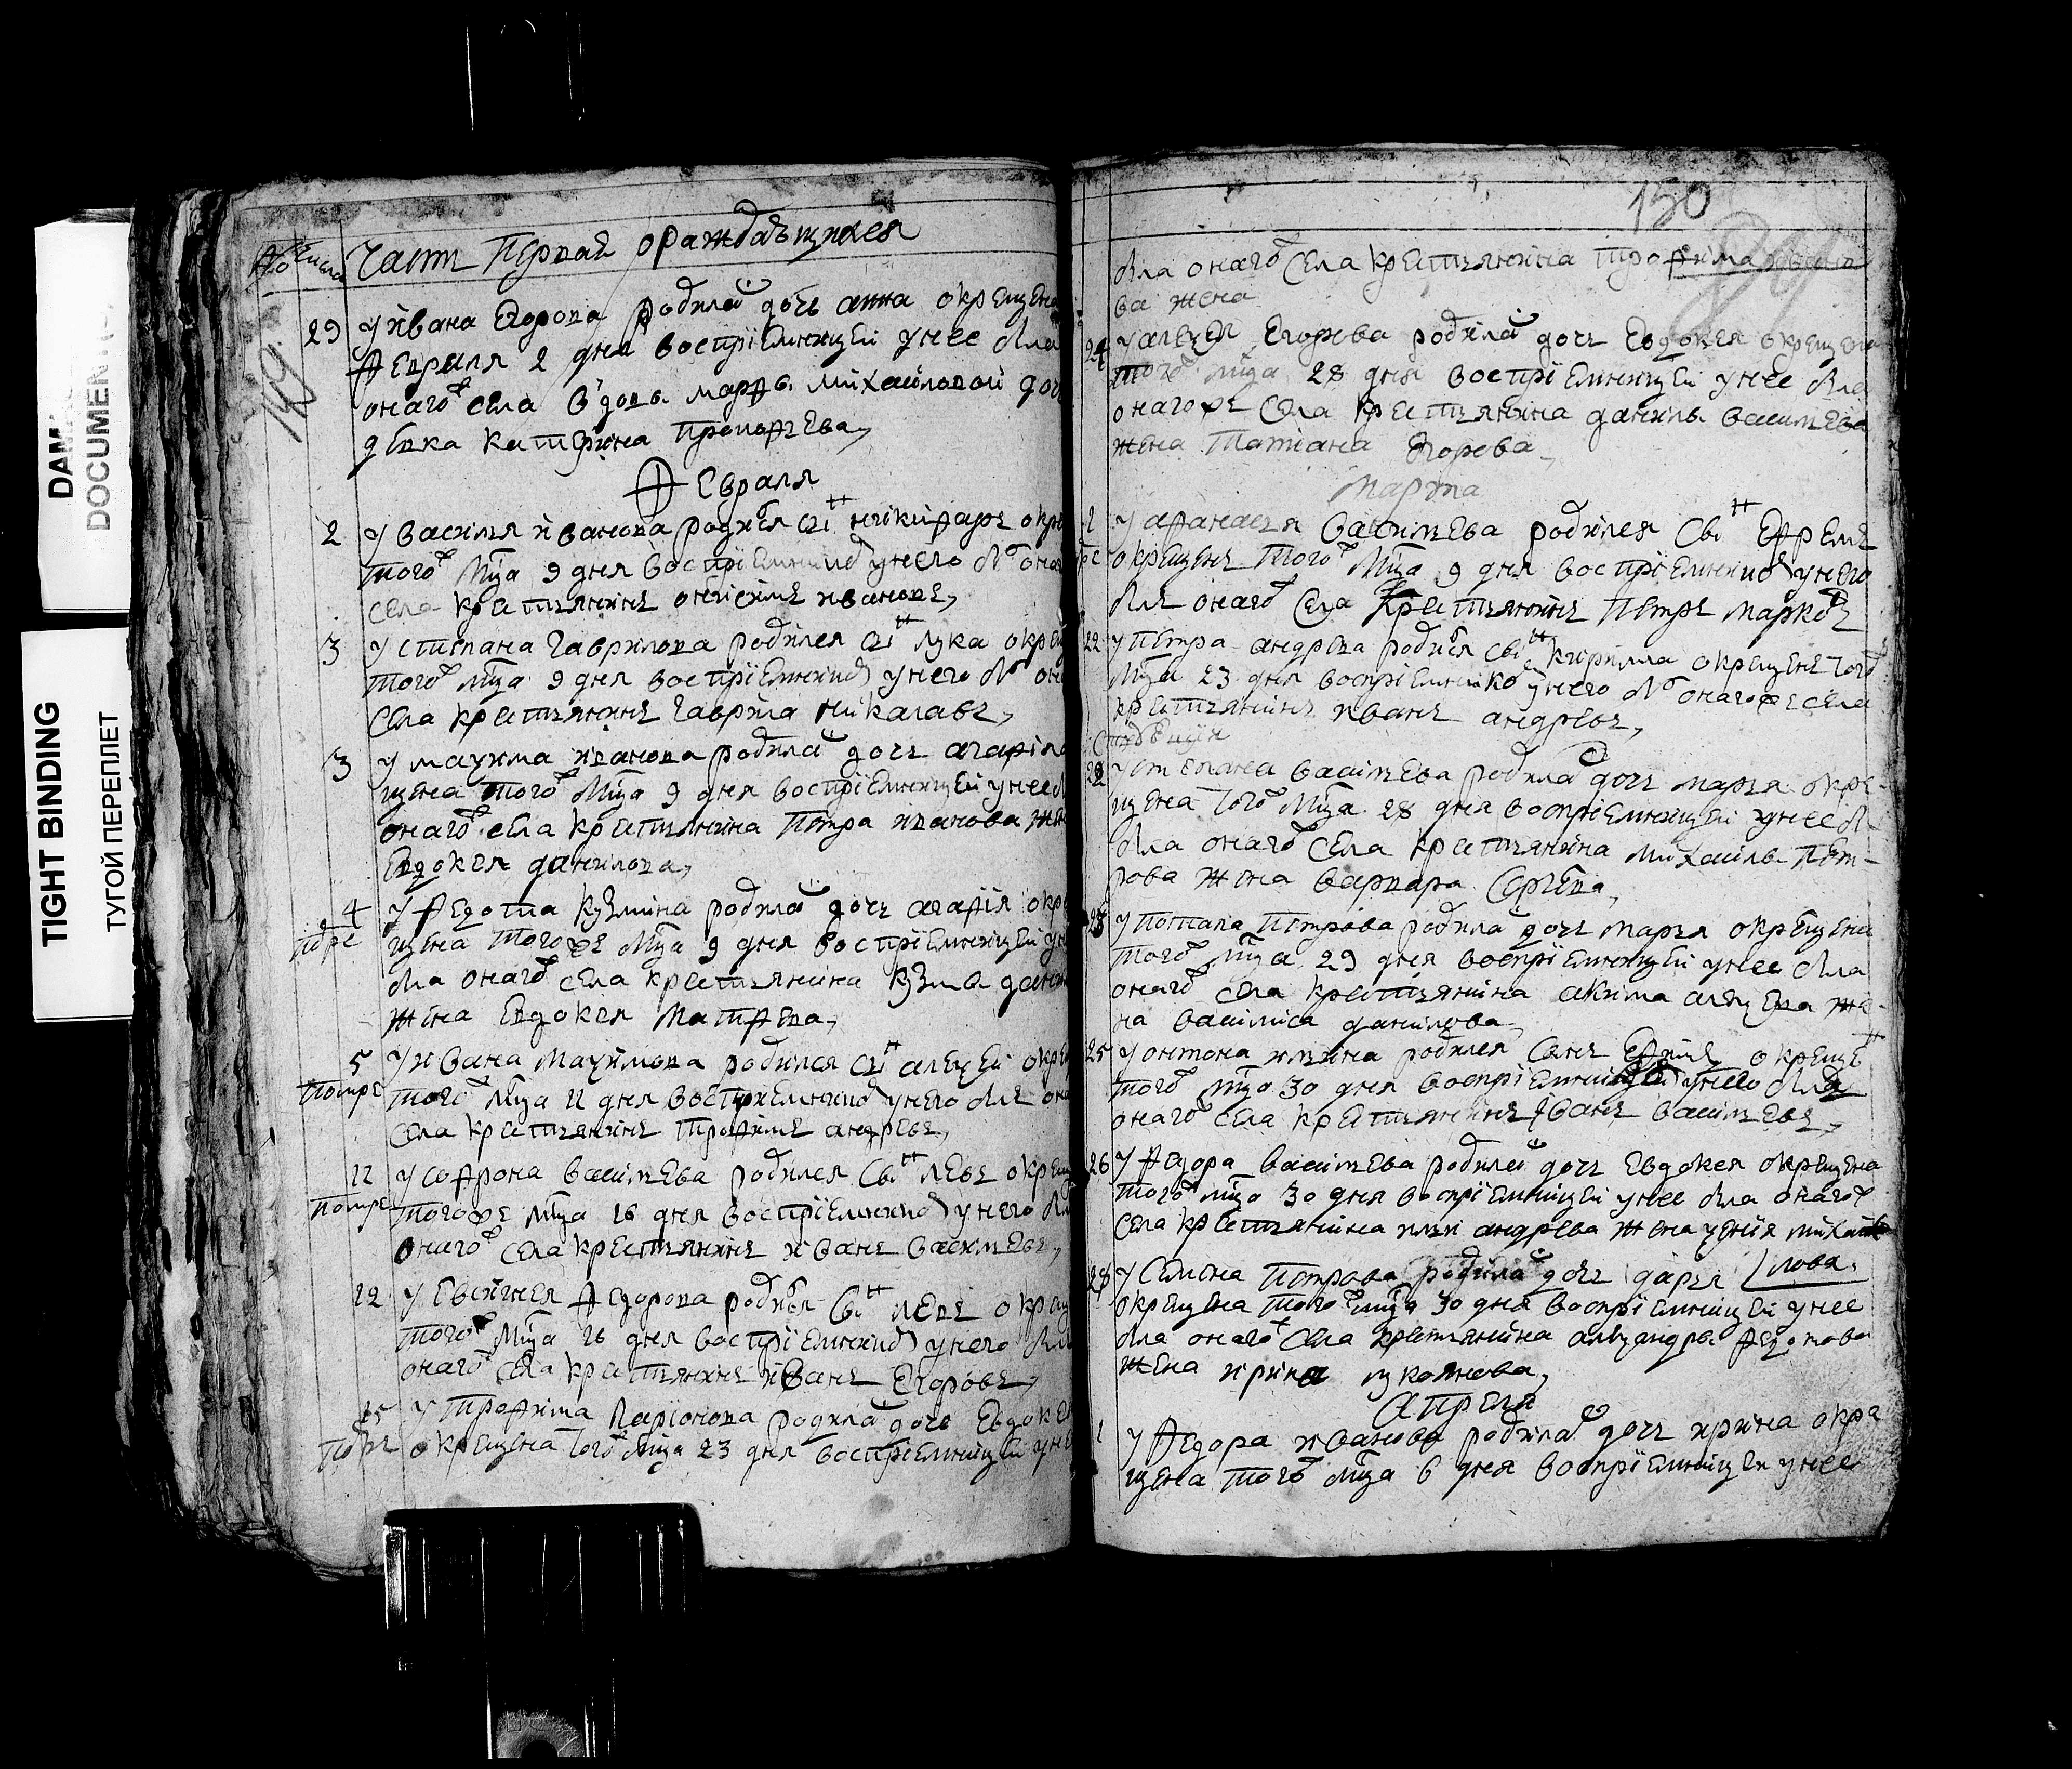 DAM
DOCUMEN
TIGHT BINDING
ТУГОЙ ПЕРЕПЛЕТ
149
число Часть первая ораждающихся
29 у ивана Егорова родилас дочь анна окрещена
февраля 2 дня воспрiемницей у нее была
онаго села вдовы марфы михайловой доч
девка катерина прокофьева,
Февраля
2 у василья иванова родился сын никифоръ окре
того мца 9 дня воспрiемником у него был она
села крестьянинъ онисимъ ивановъ,
3 у стипана гаврилова родился сын лука окре
того мца 9 дня воспрiемником у него был он
села крестьянинъ гаврила никалавъ,
3 у маѯима иванова родилас дочь агафiя
щена того мца 9 дня воспрiемницей у нее
онаго села крестьянина петра иванова же
Евдокея данилова,
4 у федота кузмина родилас дочь агафiя окре
помре щена того же мца 9 дня воспрiемницей у не
была онаго села крестьянина кузмы дани
жена Евдокея матфева,
5 у ивана маѯимова родился сын алеѯей окре
помре того мца 11 дня воспрiемником у него былъ он
села крестьянинъ трофимъ андревъ,
11 у софрона васильева родился сын левъ окрещ
помре того же мца 16 дня воспрiемником у него бы
онаго села крестьянинъ иванъ васильевъ,
12 у Евсигнея федорова родился сын левъ окрещ
того мца 16 дня воспрiемником у него бы
онаго села крестьянинъ иванъ Егоровъ,
15 у трофима ларiонова родилас дочь Евдокея
помре окрещена того мца 23 дня воспрiемницей у не
150
была онаго села крестьянина трофима
ва жена
24 у алеѯея Егорова родилас дочь Евдокея окрещена
того мца 28 дня воспрiемницей у нее была
онагоже села крестьянина данилы васильева
жена татiана Егорова
Марта
1 у афанасья васильева родился сын Ефремъ
окрещенъ того мца 9 дня воспрiемником у него
былъ онаго села крестьянинъ петръ марковъ
22 у петра андрева родился сын кирилла окрещенъ того
мца 23 дня воспрiемником у него был онагоже села
крестьянинъ иванъ андревъ,
22 у степана васильева родилас дочь марья окре
щена того мца 28 дня воспрiемницей у нее
была онаго села крестьянина михайлы пет
рова жена варвара сергева,
23 у потапа петрова родилас дочь марья окрещена
того мца 29 дня воспрiемницей у нее была
онаго села крестьянина акима алеѯева же
на василиса данилова,
25 у онтона ильина родился сынъ окрещен
того мца 30 дня у него былъ
онаго села крестьянинъ иванъ васильевъ,
26 у федора васильева родилас дочь Евдокея окрещена
того мца 30 дня воспрiемницей у нее была онаго
села крестьянина ильи андрева жена михай
лова,
28 у семена петрова родилас дочь дарья
окрещена того мца 30 дня воспрiемницей у нее
была онаго села крестьянина алеѯандры федотова
жена ирина лукоянова,
Апреля
1 у федора иванова родилас дочь ирина окре
щена того мца 6 дня воспрiемницей у нее